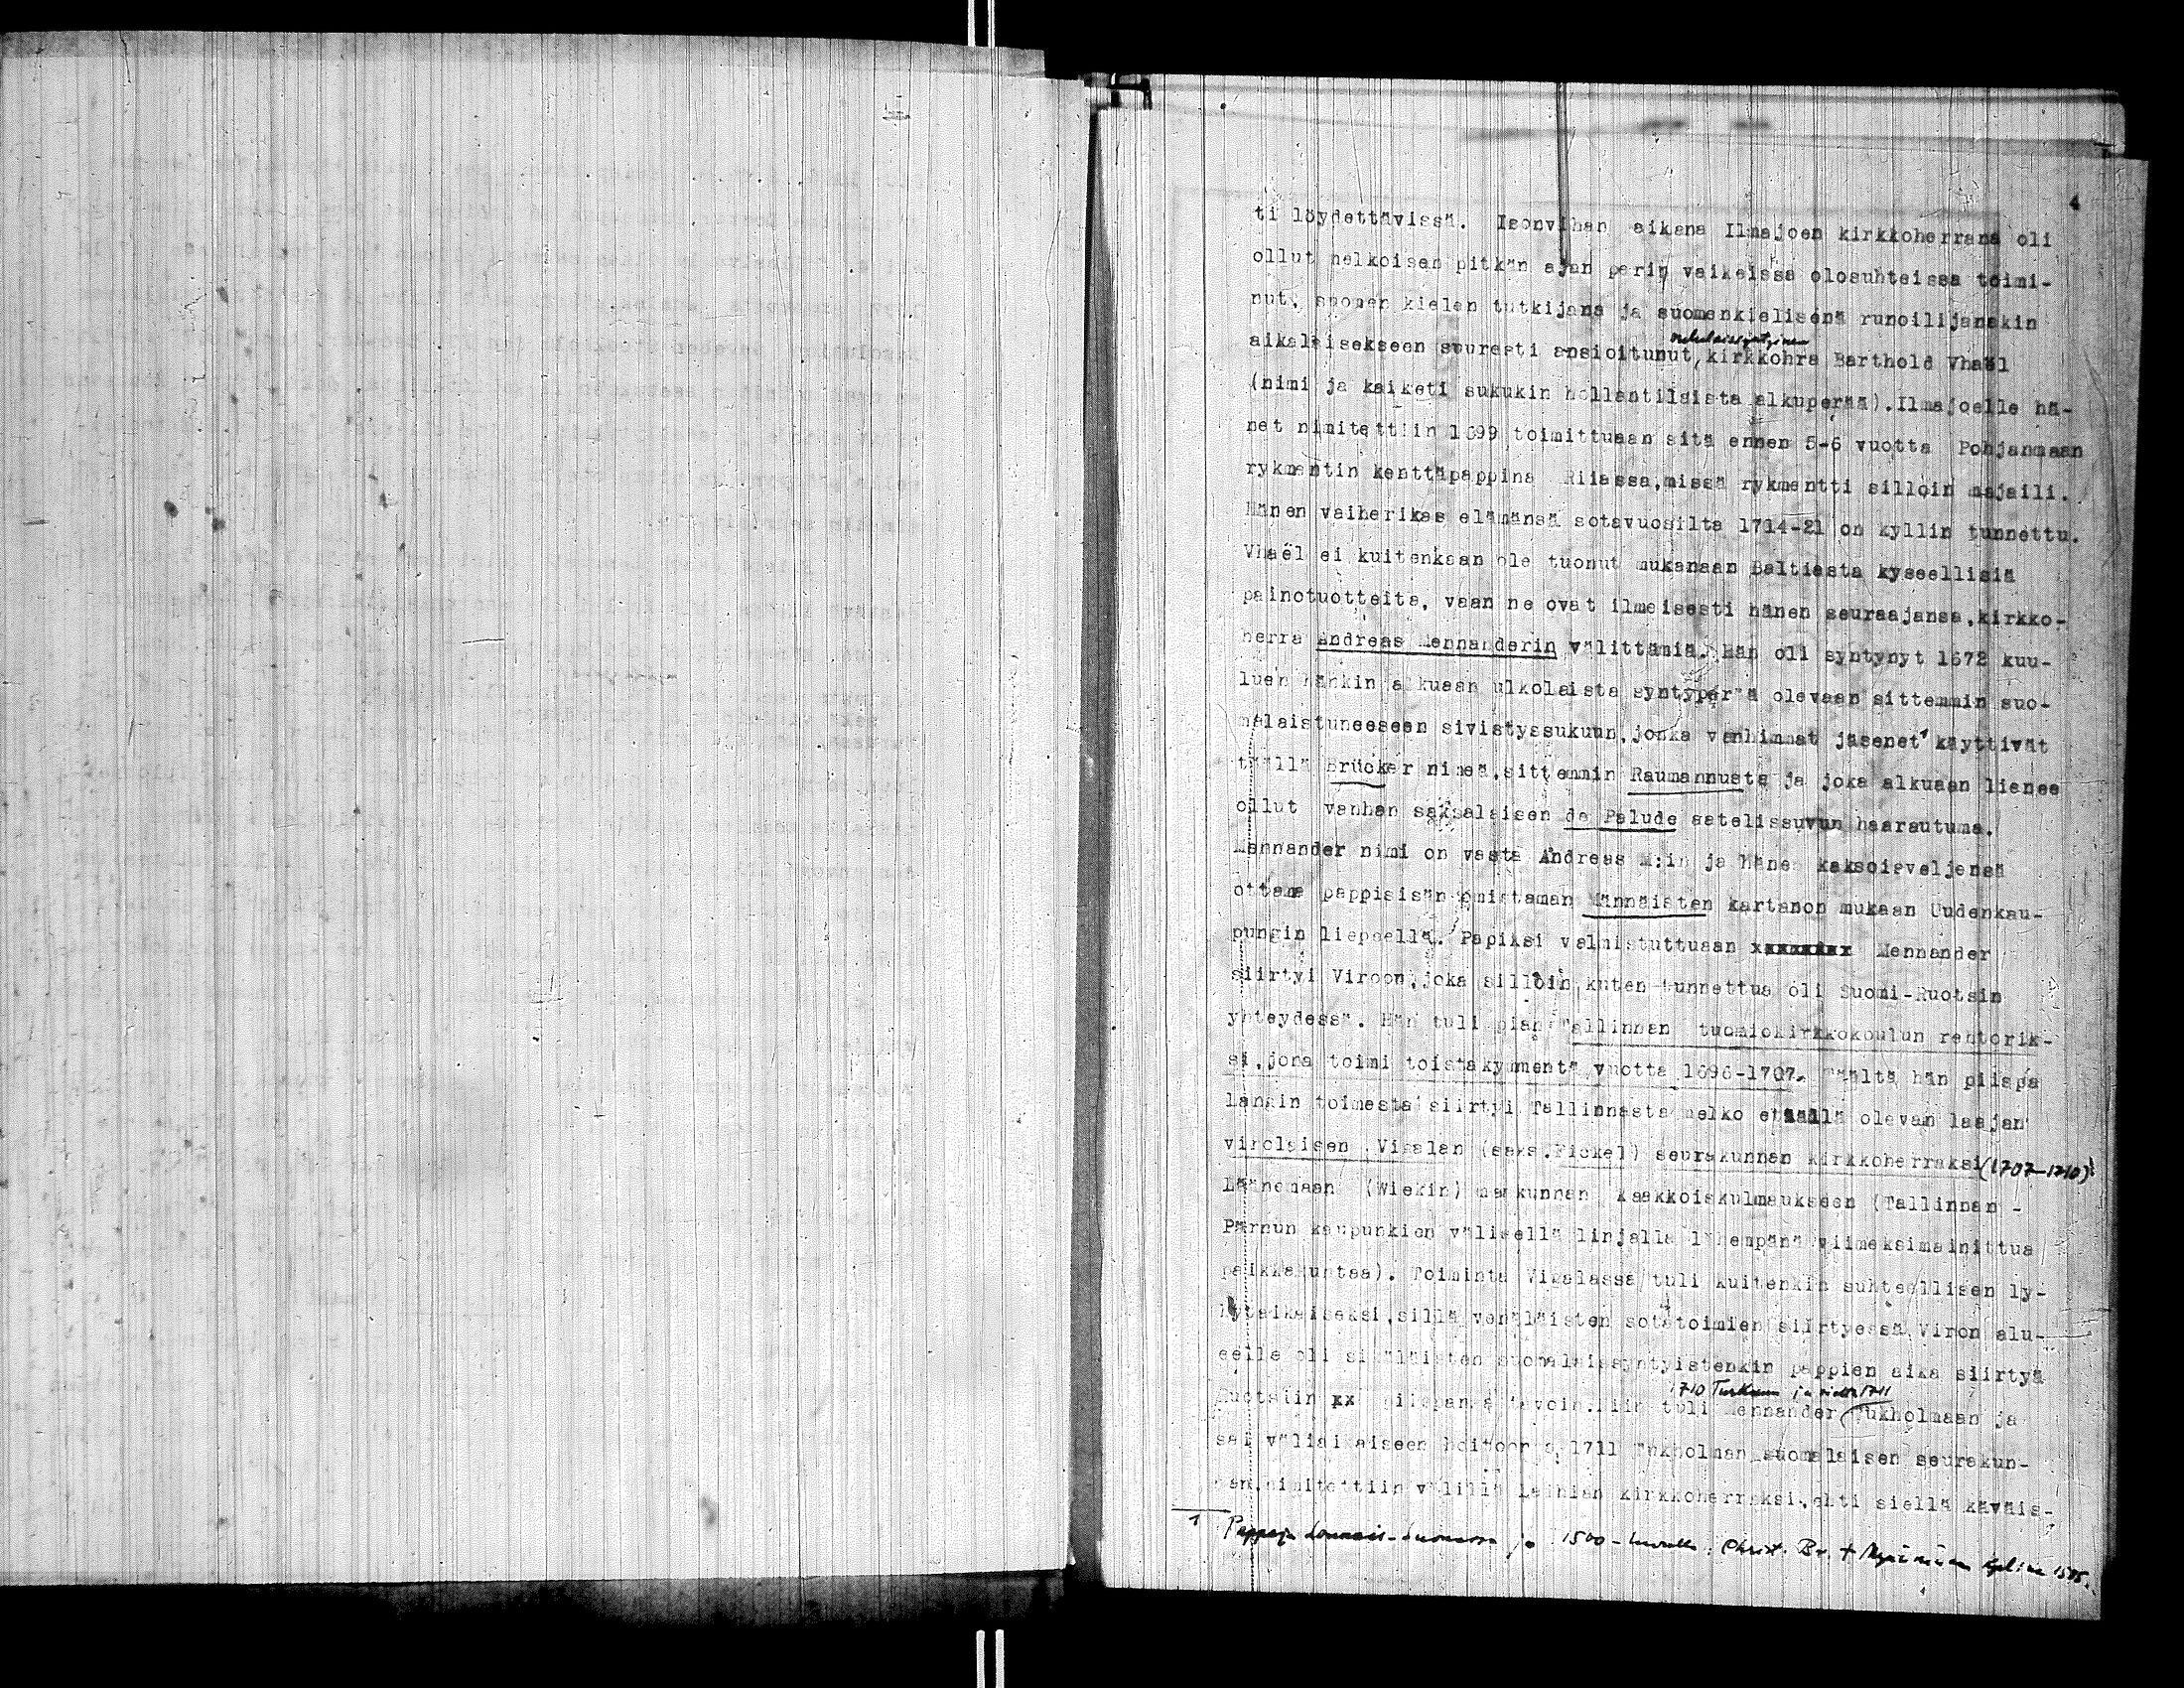 4
ti löydettävissä. Isonvihan aikana Ilmajoen kirkkoherrana oli
ollut melkoisen pitkän ajan perin vaikeissa olosuhteissa toimi-
nut, suomen kielen tutkijana ja suomenkielisenä runoilijanakin
aikalaisekseen suuresti ansioitunut, kirkkohra Barthold Vhaël
(nimi ja kaiketi sukukin hollantilaista alkuperää). Ilmajoelle hä-
net nimitettiin 1699 toimittuaan sitä ennen 5-6 vuotta Pohjanmaan
rykmentin kenttäpappina Riiassa, missä rykmentti silloin majaili.
Hänen vaiherikas elämänsä sotavuosilta 1714-21 on kyllin tunnettu.
Vhaël ei kuitenkaan ole tuonut mukanaan Baltiasta kyseellisiä
painotuotteita, vaan ne ovat ilmeisesti hänen seuraajansa, kirkko-
herra Andreas Mennanderin välittämiä. Hän oli syntynyt 1672 kuu-
luen hänkin alkuaan ulkolaista syntyperää olevaan sittemmin suo-
malaistuneeseen sivistyssukuun, jonka vanhimmat jäsenet¹ käyttivät
täällä Brücker nimeä, sittemmin Raumannusta ja joka alkuaan lienee
ollut vanhan saksalaisen de Palude aatelissuvun haarautuma.
Mennander nimi on vasta Andreas M:in ja hänen kaksoisveljensä
ottama pappisisän omistaman Männäisten kartanon mukaan Uudenkau-
pungin liepeellä. Papiksi valmistuttuaan xxxxxxxx Mennander
siirtyi Viroon, joka silloin, kuten tunnettua oli Suomi-Ruotsin
yhteydessä. Hän tuli pian Tallinnan tuomiokirkkokoulun rehtorik-
si, jona toimi toistakymmentä vuotta 1696-1707. Täältä hän piispa
Langin toimesta siirtyi Tallinnasta melko etäällä olevan laajan
virolaisen Vigalan (saks. Fickel) seurakunnan kirkkoherraksi (1707-1710)
Läänemaan (Wiekin) maakunnan kaakkoiskulmaukseen (Tallinnan -
Pärnun kaupunkien välisellä linjalla lähempänä viimeksimainittua
paikkakuntaa). Toiminta Vigalassa tuli kuitenkin suhteellisen ly-
hytaikaiseksi, sillä venäläisten sotatoimien siirtyessä Viron alu-
eelle oli sikäläisten suomalaissyntyistenkin pappien aika siirtyä
1710 Turkuun ja sieltä 1711
Ruotsiin xx piispansa tavoin. Niin tuli Mennander Tukholmaan ja
sai väliaikaiseen hoitoon 1711 Tukholman suomalaisen seurakun-
nan, nimitettiin välillä Laihian kirkkoherraksi, ehti siellä käväis-
1 Pappeja Lounais-Suomessa jo 1500-luvulla, Christ. Br. +